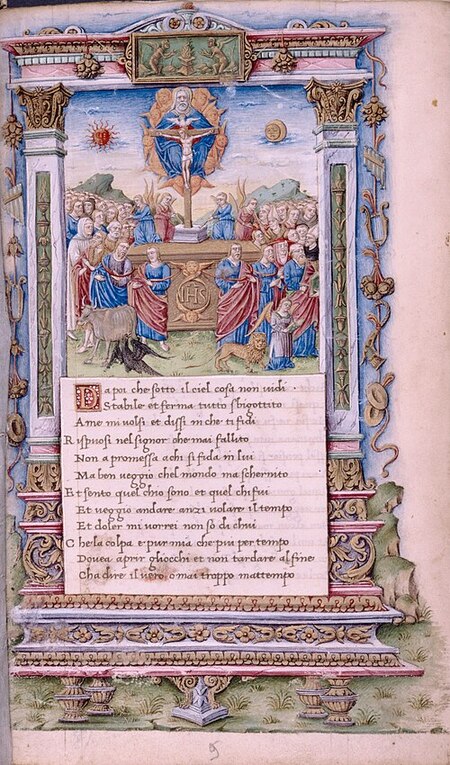 IHS
Da poi che sotto il ciel cosa non uidi
Stabile et ferma tutto sbigottito
A me mi uolsi et dissi in che ti fidi
Rispuosi nel signor che mai fallito
Non a promessa a chi si fida in lui
Ma ben ueggio chel mondo ma schernito
Et sento quel chio sono et quel chi fui
Et ueggio andare anzi uolare il tempo
Et doler mi uorrei non so di chui
Che la colpa e pur mia che piu per tempo
Douea aprir gliocchi et non tardare al fine
Cha dire il uero omai troppo mattempo